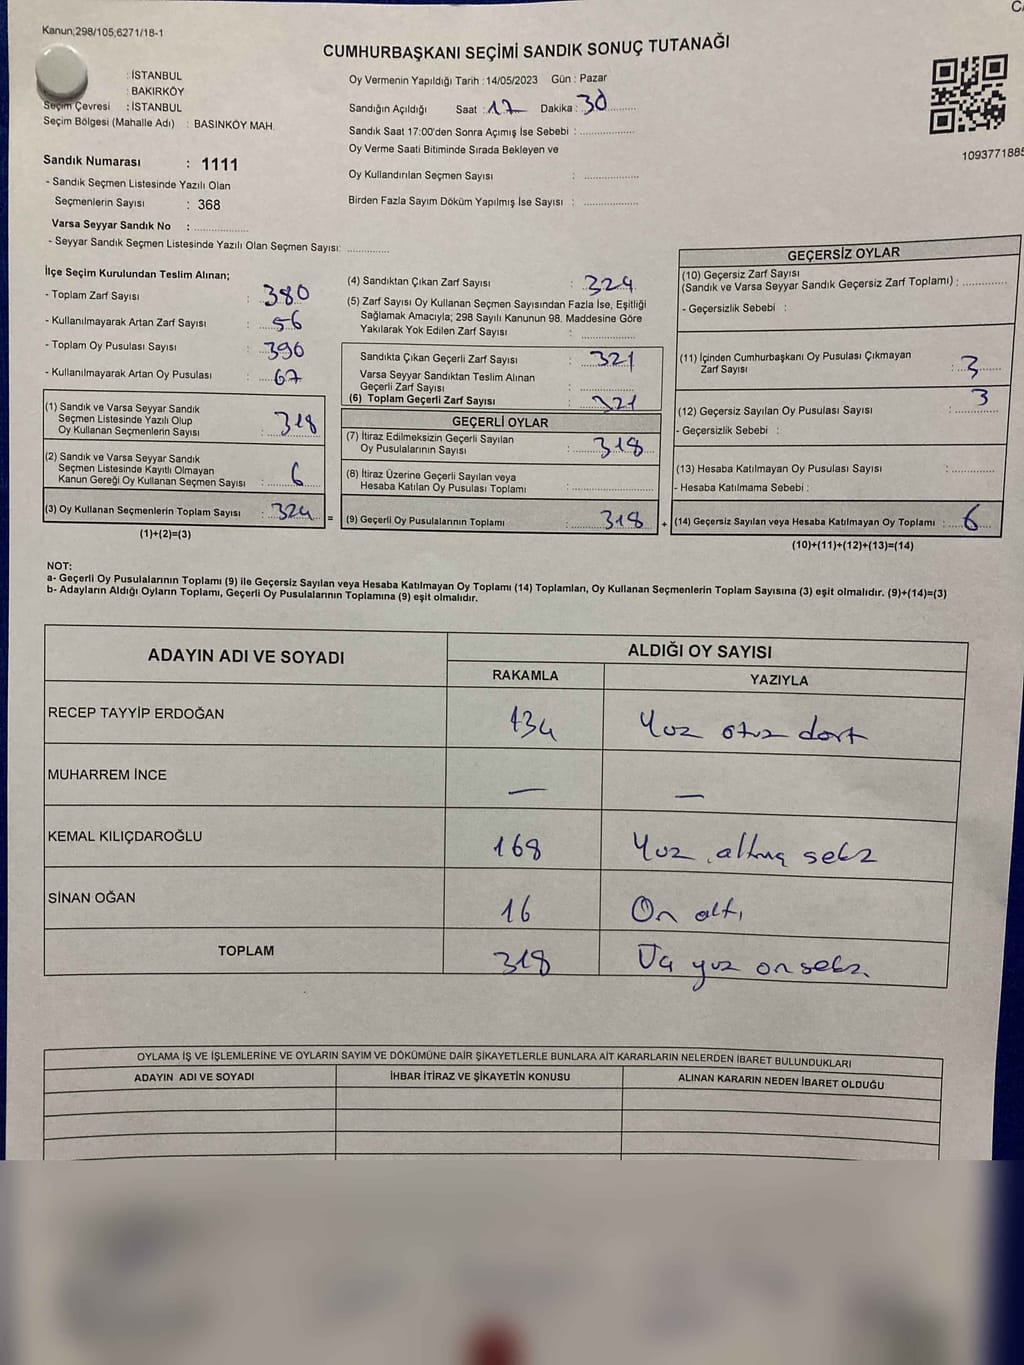 Kanun;298/105,6271/18-1
CUMHURBAŞKANI SEÇİMİ SANDIK SONUÇ TUTANAĞI
: İSTANBUL
: BAKIRKÖY
Seçim Çevresi : İSTANBUL
Seçim Bölgesi (Mahalle Adı) : BASINKÖY MAH.
Sandık Numarası : 1111
- Sandık Seçmen Listesinde Yazılı Olan
Seçmenlerin Sayısı : 368
Varsa Seyyar Sandık No :
- Seyyar Sandık Seçmen Listesinde Yazılı Olan Seçmen Sayısı:
Oy Vermenin Yapıldığı Tarih : 14/05/2023 Gün : Pazar
Sandığın Açıldığı Saat : 17 Dakika : 30
Sandık Saat 17:00'den Sonra Açımış İse Sebebi :
Oy Verme Saati Bitiminde Sırada Bekleyen ve
Oy Kullandırılan Seçmen Sayısı :
Birden Fazla Sayım Döküm Yapılmış İse Sayısı :
1093771885
İlçe Seçim Kurulundan Teslim Alınan;
- Toplam Zarf Sayısı : 380
- Kullanılmayarak Artan Zarf Sayısı : 56
- Toplam Oy Pusulası Sayısı : 390
- Kullanılmayarak Artan Oy Pusulası : 67
(1) Sandık ve Varsa Seyyar Sandık
Seçmen Listesinde Yazılı Olup
Oy Kullanan Seçmenlerin Sayısı : 318
(2) Sandık ve Varsa Seyyar Sandık
Seçmen Listesinde Kayıtlı Olmayan
Kanun Gereği Oy Kullanan Seçmen Sayısı : 6
(3) Oy Kullanan Seçmenlerin Toplam Sayısı : 324 =
(1)+(2)=(3)
(4) Sandıktan Çıkan Zarf Sayısı : 324
(5) Zarf Sayısı Oy Kullanan Seçmen Sayısından Fazla İse, Eşitliği
Sağlamak Amacıyla; 298 Sayılı Kanunun 98. Maddesine Göre
Yakılarak Yok Edilen Zarf Sayısı :
Sandıkta Çıkan Geçerli Zarf Sayısı : 321
Varsa Seyyar Sandıktan Teslim Alınan
Geçerli Zarf Sayısı :
(6) Toplam Geçerli Zarf Sayısı : 321
GEÇERLİ OYLAR
(7) İtiraz Edilmeksizin Geçerli Sayılan
Oy Pusulalarının Sayısı : 318
(8) İtiraz Üzerine Geçerli Sayılan veya
Hesaba Katılan Oy Pusulası Toplamı :
(9) Geçerli Oy Pusulalarının Toplamı : 318 +
GEÇERSİZ OYLAR
(10) Geçersiz Zarf Sayısı
(Sandık ve Varsa Seyyar Sandık Geçersiz Zarf Toplamı) :
- Geçersizlik Sebebi :
(11) İçinden Cumhurbaşkanı Oy Pusulası Çıkmayan
Zarf Sayısı : 3
(12) Geçersiz Sayılan Oy Pusulası Sayısı : 3
- Geçersizlik Sebebi :
(13) Hesaba Katılmayan Oy Pusulası Sayısı :
- Hesaba Katılmama Sebebi :
(14) Geçersiz Sayılan veya Hesaba Katılmayan Oy Toplamı : 6
(10)+(11)+(12)+(13)=(14)
NOT:
a- Geçerli Oy Pusulalarının Toplamı (9) ile Geçersiz Sayılan veya Hesaba Katılmayan Oy Toplamı (14) Toplamları, Oy Kullanan Seçmenlerin Toplam Sayısına (3) eşit olmalıdır. (9)+(14)=(3)
b- Adayların Aldığı Oyların Toplamı, Geçerli Oy Pusulalarının Toplamına (9) eşit olmalıdır.
ADAYIN ADI VE SOYADI
ALDIĞI OY SAYISI
RAKAMLA YAZIYLA
RECEP TAYYİP ERDOĞAN 134 Yüz otuz dört
MUHARREM İNCE — —
KEMAL KILIÇDAROĞLU 168 Yuz altmış sekz
SİNAN OĞAN 16 On altı
TOPLAM 318 Üç yuz onsekz.
OYLAMA İŞ VE İŞLEMLERİNE VE OYLARIN SAYIM VE DÖKÜMÜNE DAİR ŞİKAYETLERLE BUNLARA AİT KARARLARIN NELERDEN İBARET BULUNDUKLARI
ADAYIN ADI VE SOYADI İHBAR İTİRAZ VE ŞİKAYETİN KONUSU ALINAN KARARIN NEDEN İBARET OLDUĞU